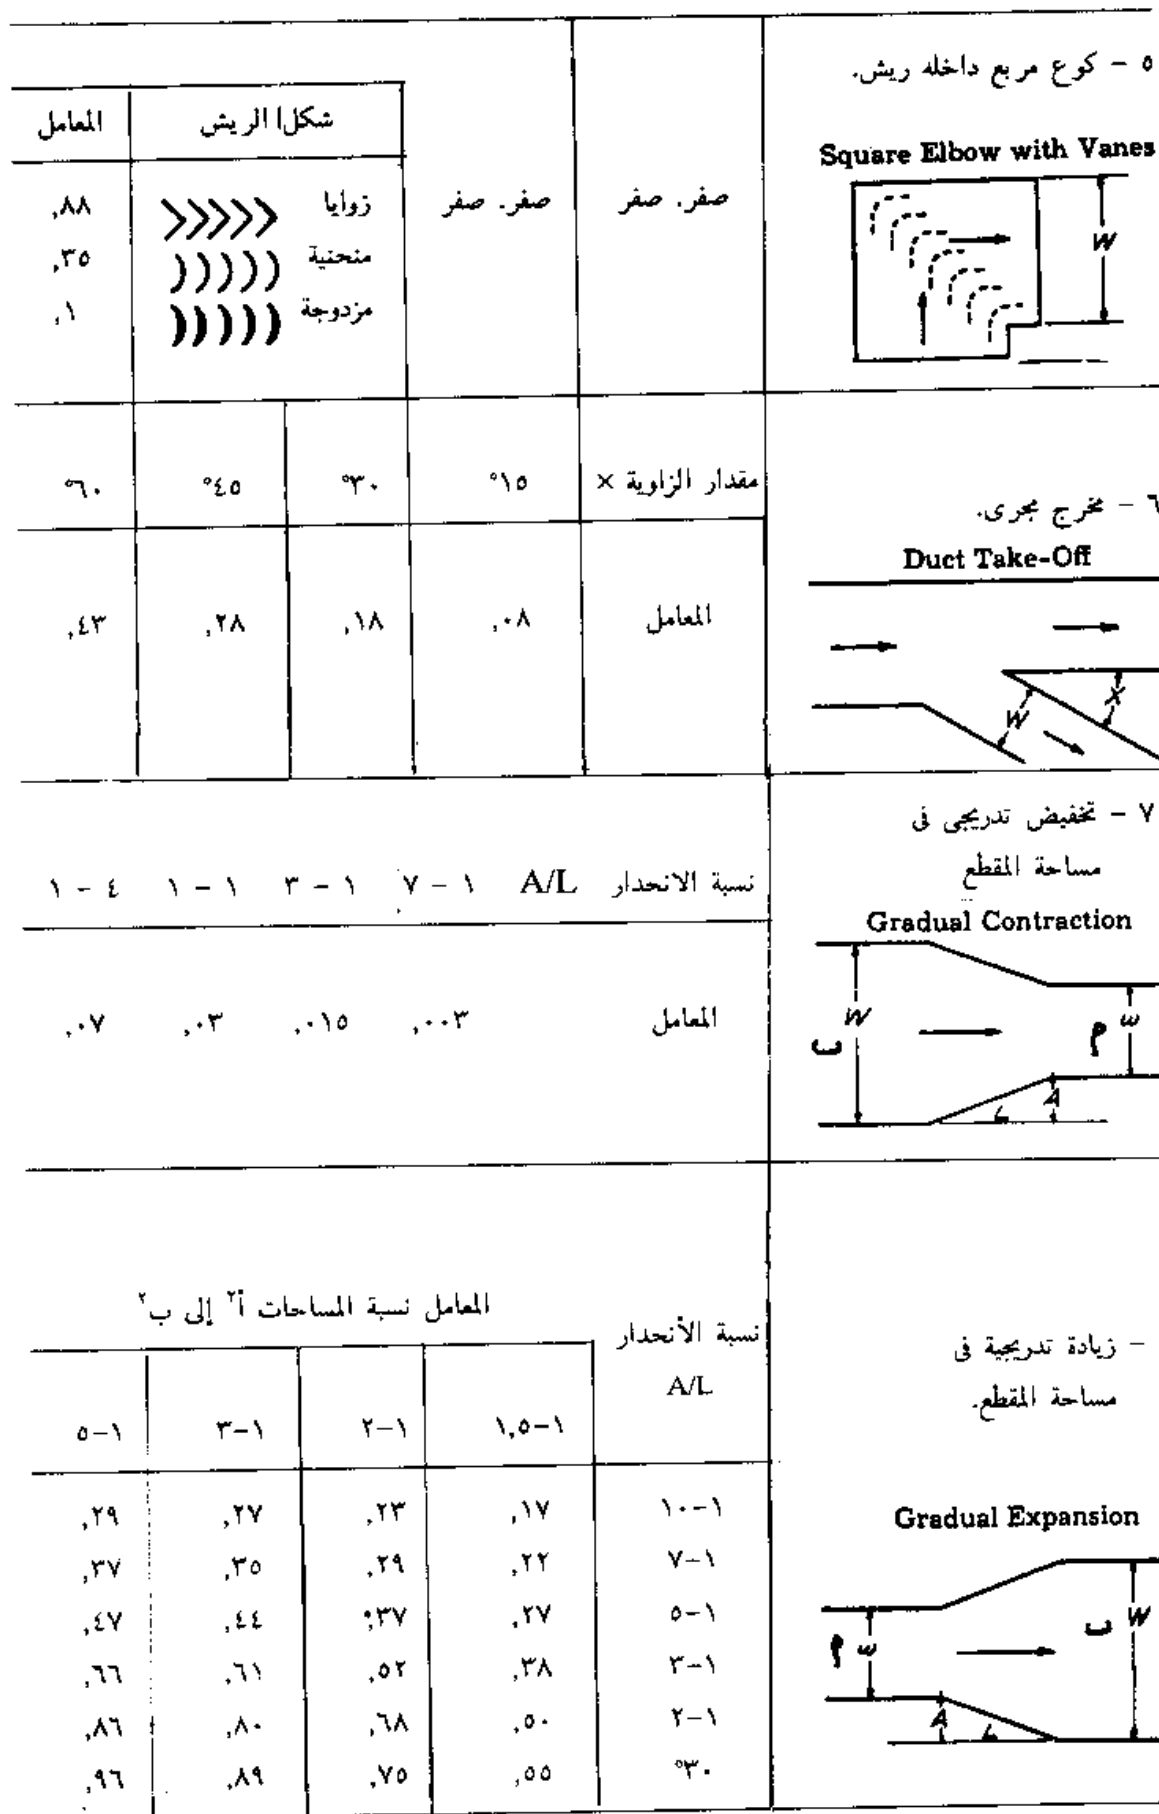 ٥ - كوع مربع داخله ريش.
Square Elbow with Vanes
W
صفر. صفر صفر. صفر
شكل الريش المعامل
زوايا ,٨٨
منحنية ,٣٥
مزدوجة ,١
٦ - مخرج مجرى.
Duct Take-Off
W X
مقدار الزاوية × ١٥° ٣٠° ٤٥° ٦٠°
المعامل ,٠٨ ,١٨ ,٢٨ ,٤٣
٧ - تخفيض تدريجى فى
مساحة المقطع
Gradual Contraction
W ب ω م A L
نسبة الانحدار A/L ١ - ٧ ١ - ٣ ١ - ١ ٤ - ١
المعامل ,٠٠٣ ,٠١٥ ,٠٣ ,٠٧
- زيادة تدريجية فى
مساحة المقطع.
Gradual Expansion
م ω ب W A L
نسبة الأنحدار
A/L
المعامل نسبة المساحات أ٢ إلى ب٢
١-١,٥ ١-٢ ١-٣ ١-٥
١-١٠ ,١٧ ,٢٣ ,٢٧ ,٢٩
١-٧ ,٢٢ ,٢٩ ,٣٥ ,٣٧
١-٥ ,٢٧ ,٣٧ ,٤٤ ,٤٧
١-٣ ,٣٨ ,٥٢ ,٦١ ,٦٦
١-٢ ,٥٠ ,٦٨ ,٨٠ ,٨٦
٣٠° ,٥٥ ,٧٥ ,٨٩ ,٩٦